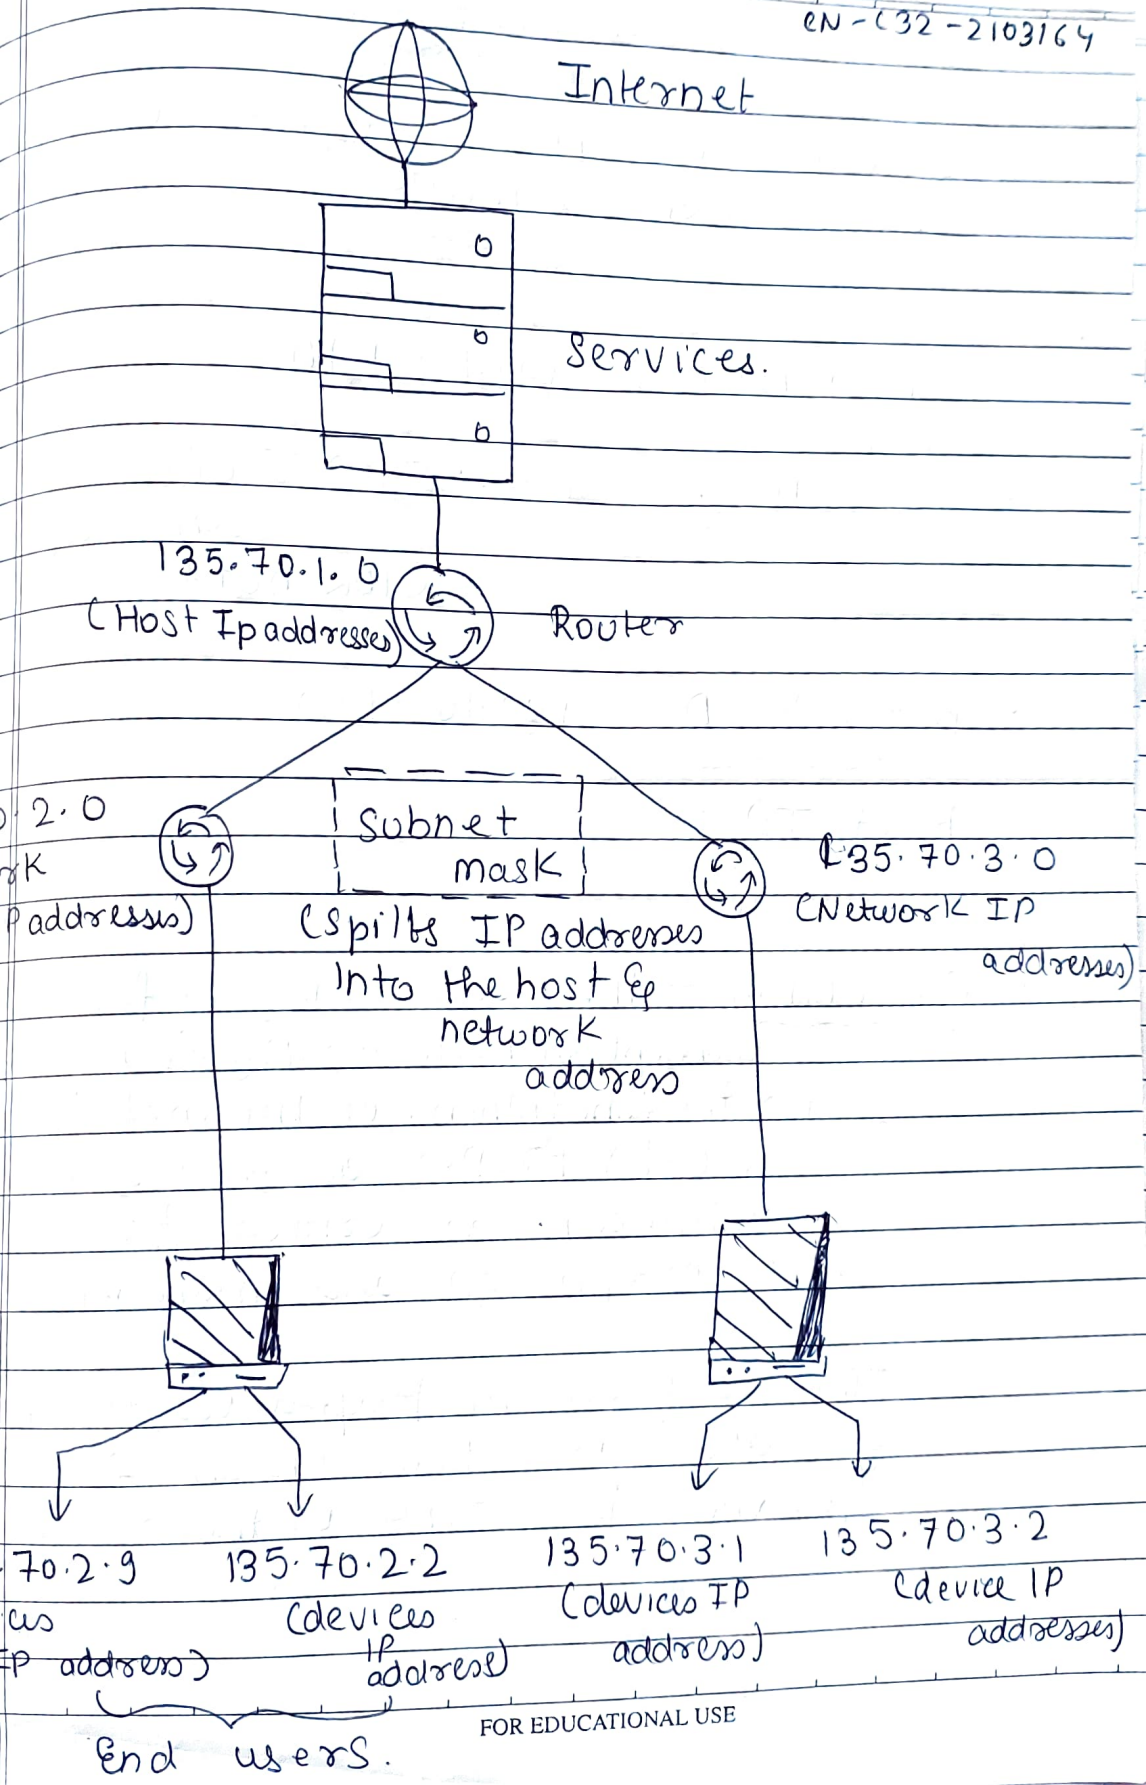 CN-C32-2103164
Internet
Services.
135.70.1.0
(Host Ip addresses)
Router
2.0
rk
P addresses)
Subnet
mask
(Spilts IP addresses
Into the host &
network
address
135.70.3.0
(Network IP
addresses)
70.2.9
ces
IP address)
135.70.2.2
(devices
IP
address)
135.70.3.1
(devices IP
address)
135.70.3.2
(device IP
addresses)
End users.
FOR EDUCATIONAL USE